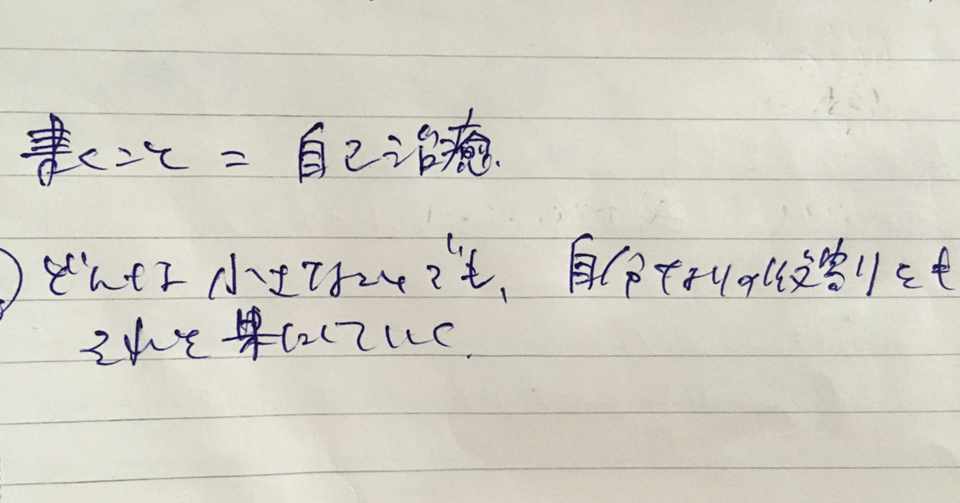 書くこと = 自己治癒.
) どんな小さなことでも、自分なりの役割りをも
それを果たしていく.